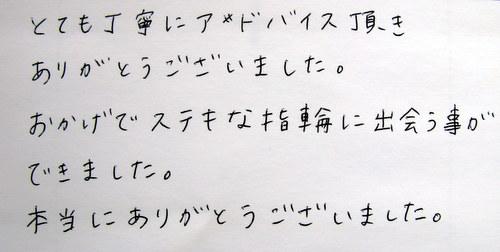 とても丁寧にアドバイス頂き
ありがとうございました。
おかげでステキな指輪に出会う事が
できました。
本当にありがとうございました。